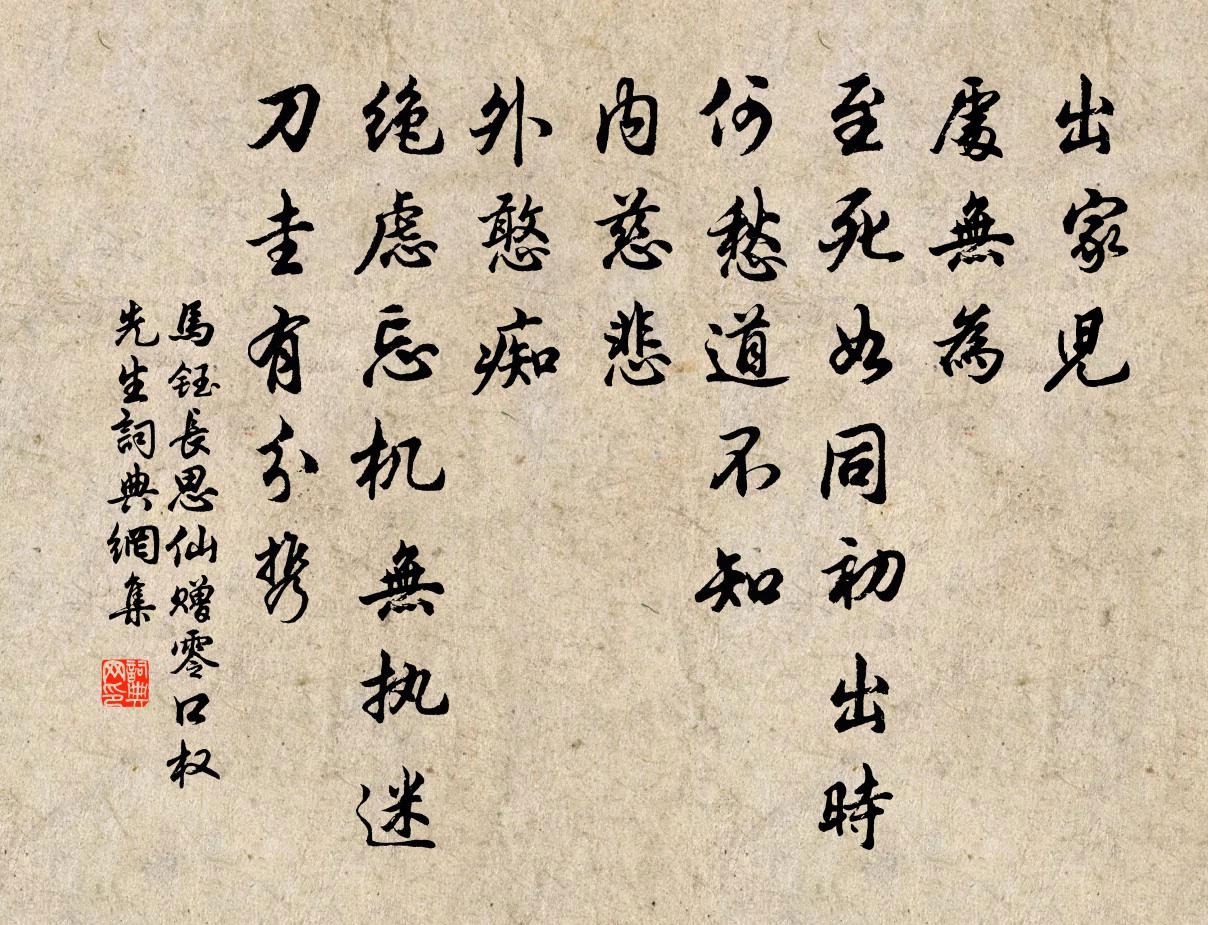 出家児
處無為
至死如同初出時
何愁道不知
内慈悲
外憨痴
绝虑忘机無执迷
刀圭有分携
馬钰長思仙赠零口权
先生詞典網集
詞典网印